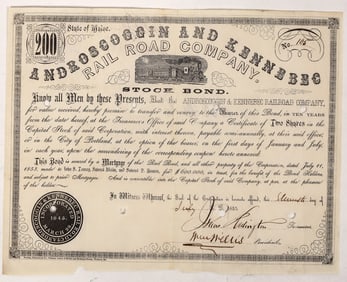 State of Maine.
200
No. 116
ANDROSCOGGIN AND KENNEBEC
RAIL ROAD COMPANY.
STOCK BOND.
Know all Men by these Presents, that the ANDROSCOGGIN & KENNEBEC RAILROAD COMPANY,
for value received, hereby promise to transfer and convey to the Owner of this Bond, in TEN YEARS
from the date hereof, at the Treasurer's Office of said Company a Certificate of Two Shares in the
Capital Stock of said Corporation, with interest thereon, payable semi-annually, at their said office,
or in the City of Portland, at the option of the bearer, on the first days of January and July,
in each year, upon the surrendering of the corresponding coupons hereto annexed.
This Bond is secured by a Mortgage of the Rail Road, and all other property of the Corporation, dated July 11,
1853, made to
for $600,000, in trust, for the benefit of the Bond Holders,
and subject to prior Mortgages. And is convertible into the Capital Stock of said Company, at par, at the pleasure
of the holder.
In Witness Whereof, the Seal of the Corporation is hereto affixed, this Eleventh day of
July 1853.
Treasurer.
President.
INCORPORATED
MARCH
1845.